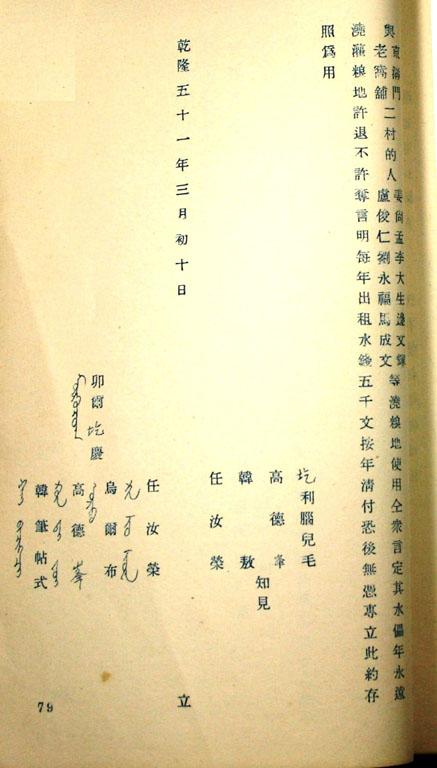 與
滿門
老窩舖
二村的人
姜尙孟李大生逯文輝
盧俊仁劉永福馬成文
等澆糧地使用仝衆言定其水僱年永遠
澆灌糧地許退不許奪言明每年出租水錢五千文按年淸付恐後無憑專立此約存
照爲用
圪利腦兒毛
高德峯
知見
韓敖
任汝榮
乾隆五十一年三月初十日
立
任汝榮
烏爾布
卯爾圪慶
高德峯
韓筆帖式
79